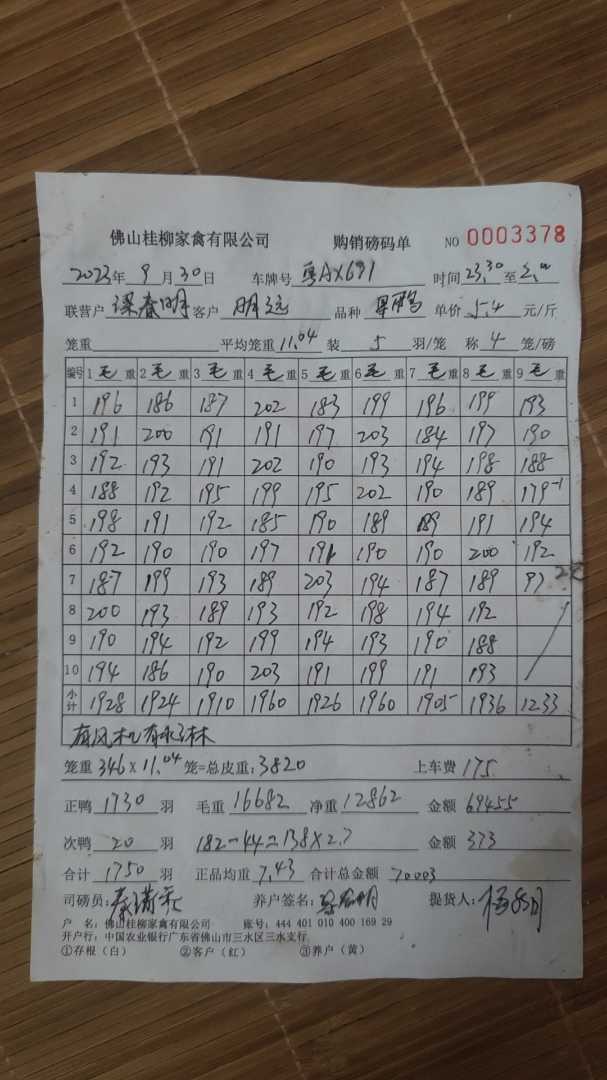 佛山桂柳家禽有限公司 购销磅码单 NO 0003378
2023年 9 月 30 日 车牌号 粤AX691 时间 23.30 至 2.00
联营户 客户 明远 品种 单价 5.4 元/斤
笼重 平均笼重 11.04 装 5 羽/笼 称 4 笼/磅
编号 1 毛 重 2 毛 重 3 毛 重 4 毛 重 5 毛 重 6 毛 重 7 毛 重 8 毛 重 9 毛 重
1 196 186 187 202 183 199 196 199 193
2 191 200 191 191 197 203 184 197 190
3 192 193 191 202 190 193 194 198 188
4 188 192 195 199 195 202 190 189 179-1
5 198 191 192 185 190 189 189 191 194
6 192 190 190 197 191 190 190 200 192
7 187 199 193 189 203 194 187 189 97
8 200 193 189 193 192 198 194 192
9 190 194 192 199 194 193 190 188
10 194 186 190 203 191 199 191 193
小计 1928 1924 1910 1960 1926 1960 1905 1936 1233
有风机有
笼重 346 X 11.04 笼=总皮重: 3820 上车费 175
正鸭 1730 羽 毛重 16682 净重 12862 金额 69455
次鸭 20 羽 182-44=138X2.7 金额 373
合计 1750 羽 正品均重 7.43 合计总金额 70003
司磅员: 养户签名: 提货人:
户 名: 佛山桂柳家禽有限公司 账号: 444 401 010 400 169 29
开户行: 中国农业银行广东省佛山市三水区三水支行
①存根（白） ②客户（红） ③养户（黄）